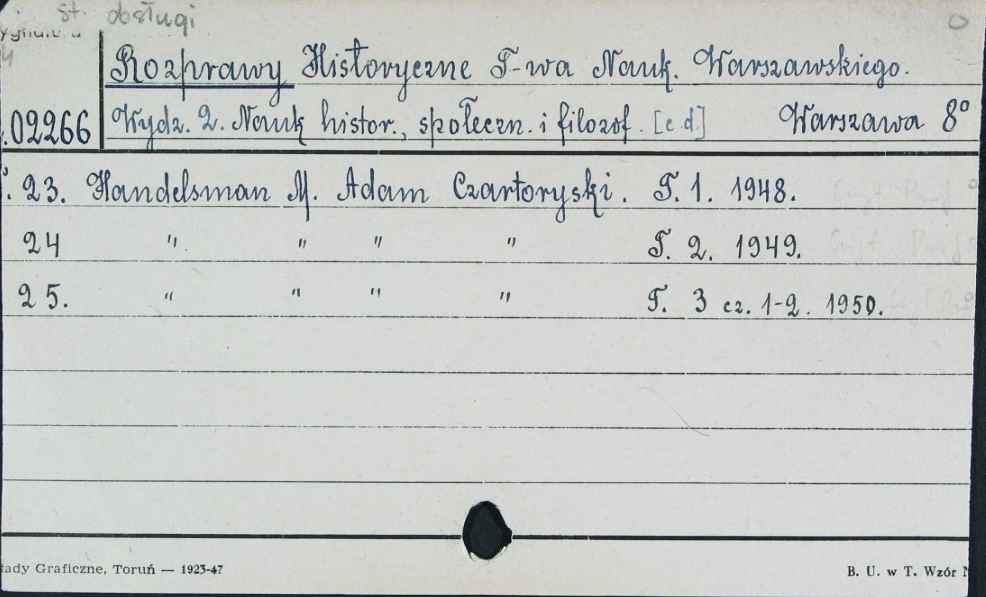 st. obsługi
Rozprawy Historyczne T-wa Nauk. Warszawskiego.
02266 Wydz. 2. Nauk histor., społeczn. i filozof. [c.d.] Warszawa 8°
23. Handelsman M. Adam Czartoryski. T. 1. 1948.
24 " " " " T. 2. 1949.
25. " " " " T. 3 cz. 1-2. 1950.
Graficzne, Toruń — 1923-47
B. U. w T. Wzór